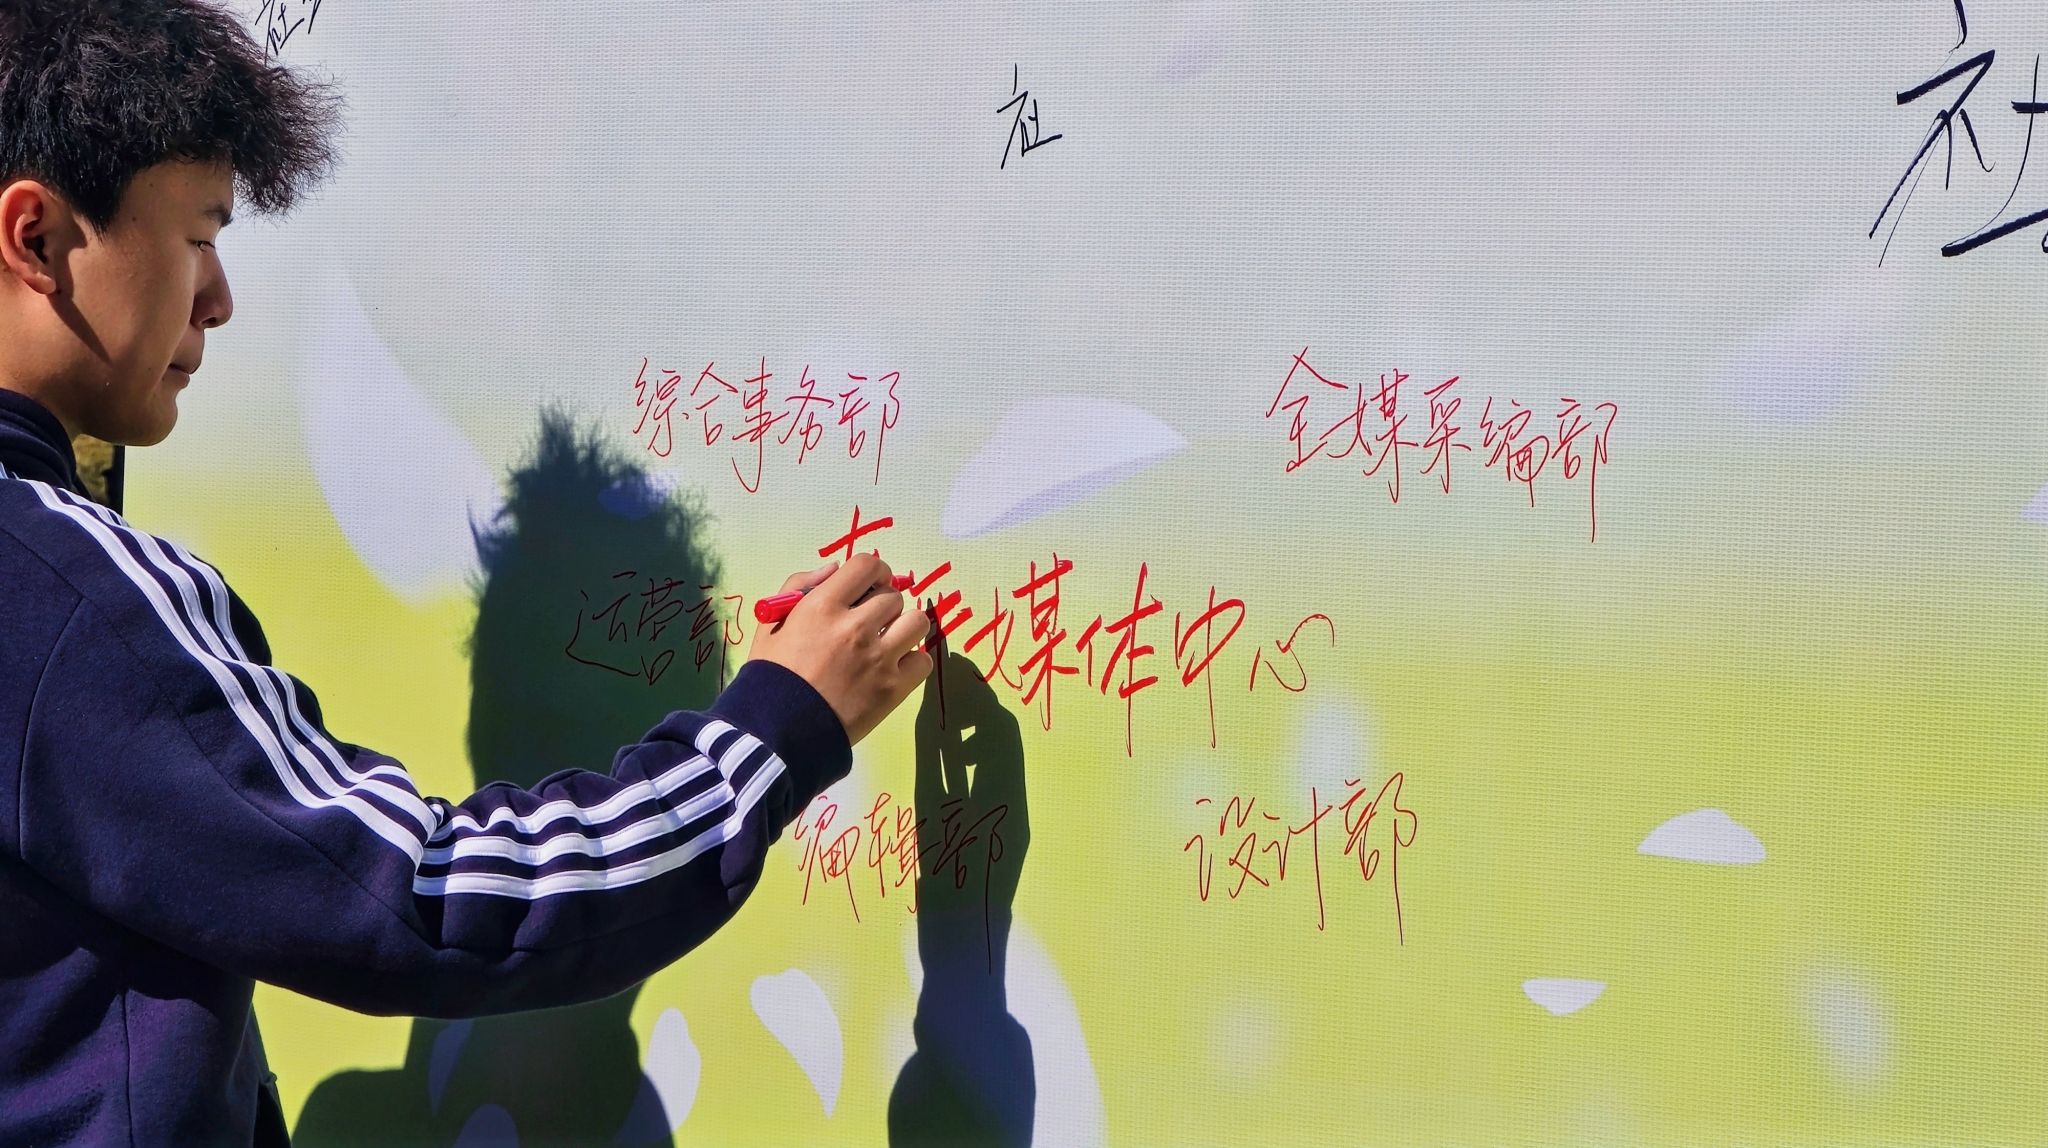 社
社
综合事务部
全媒采编部
运营部
媒体中心
编辑部
设计部